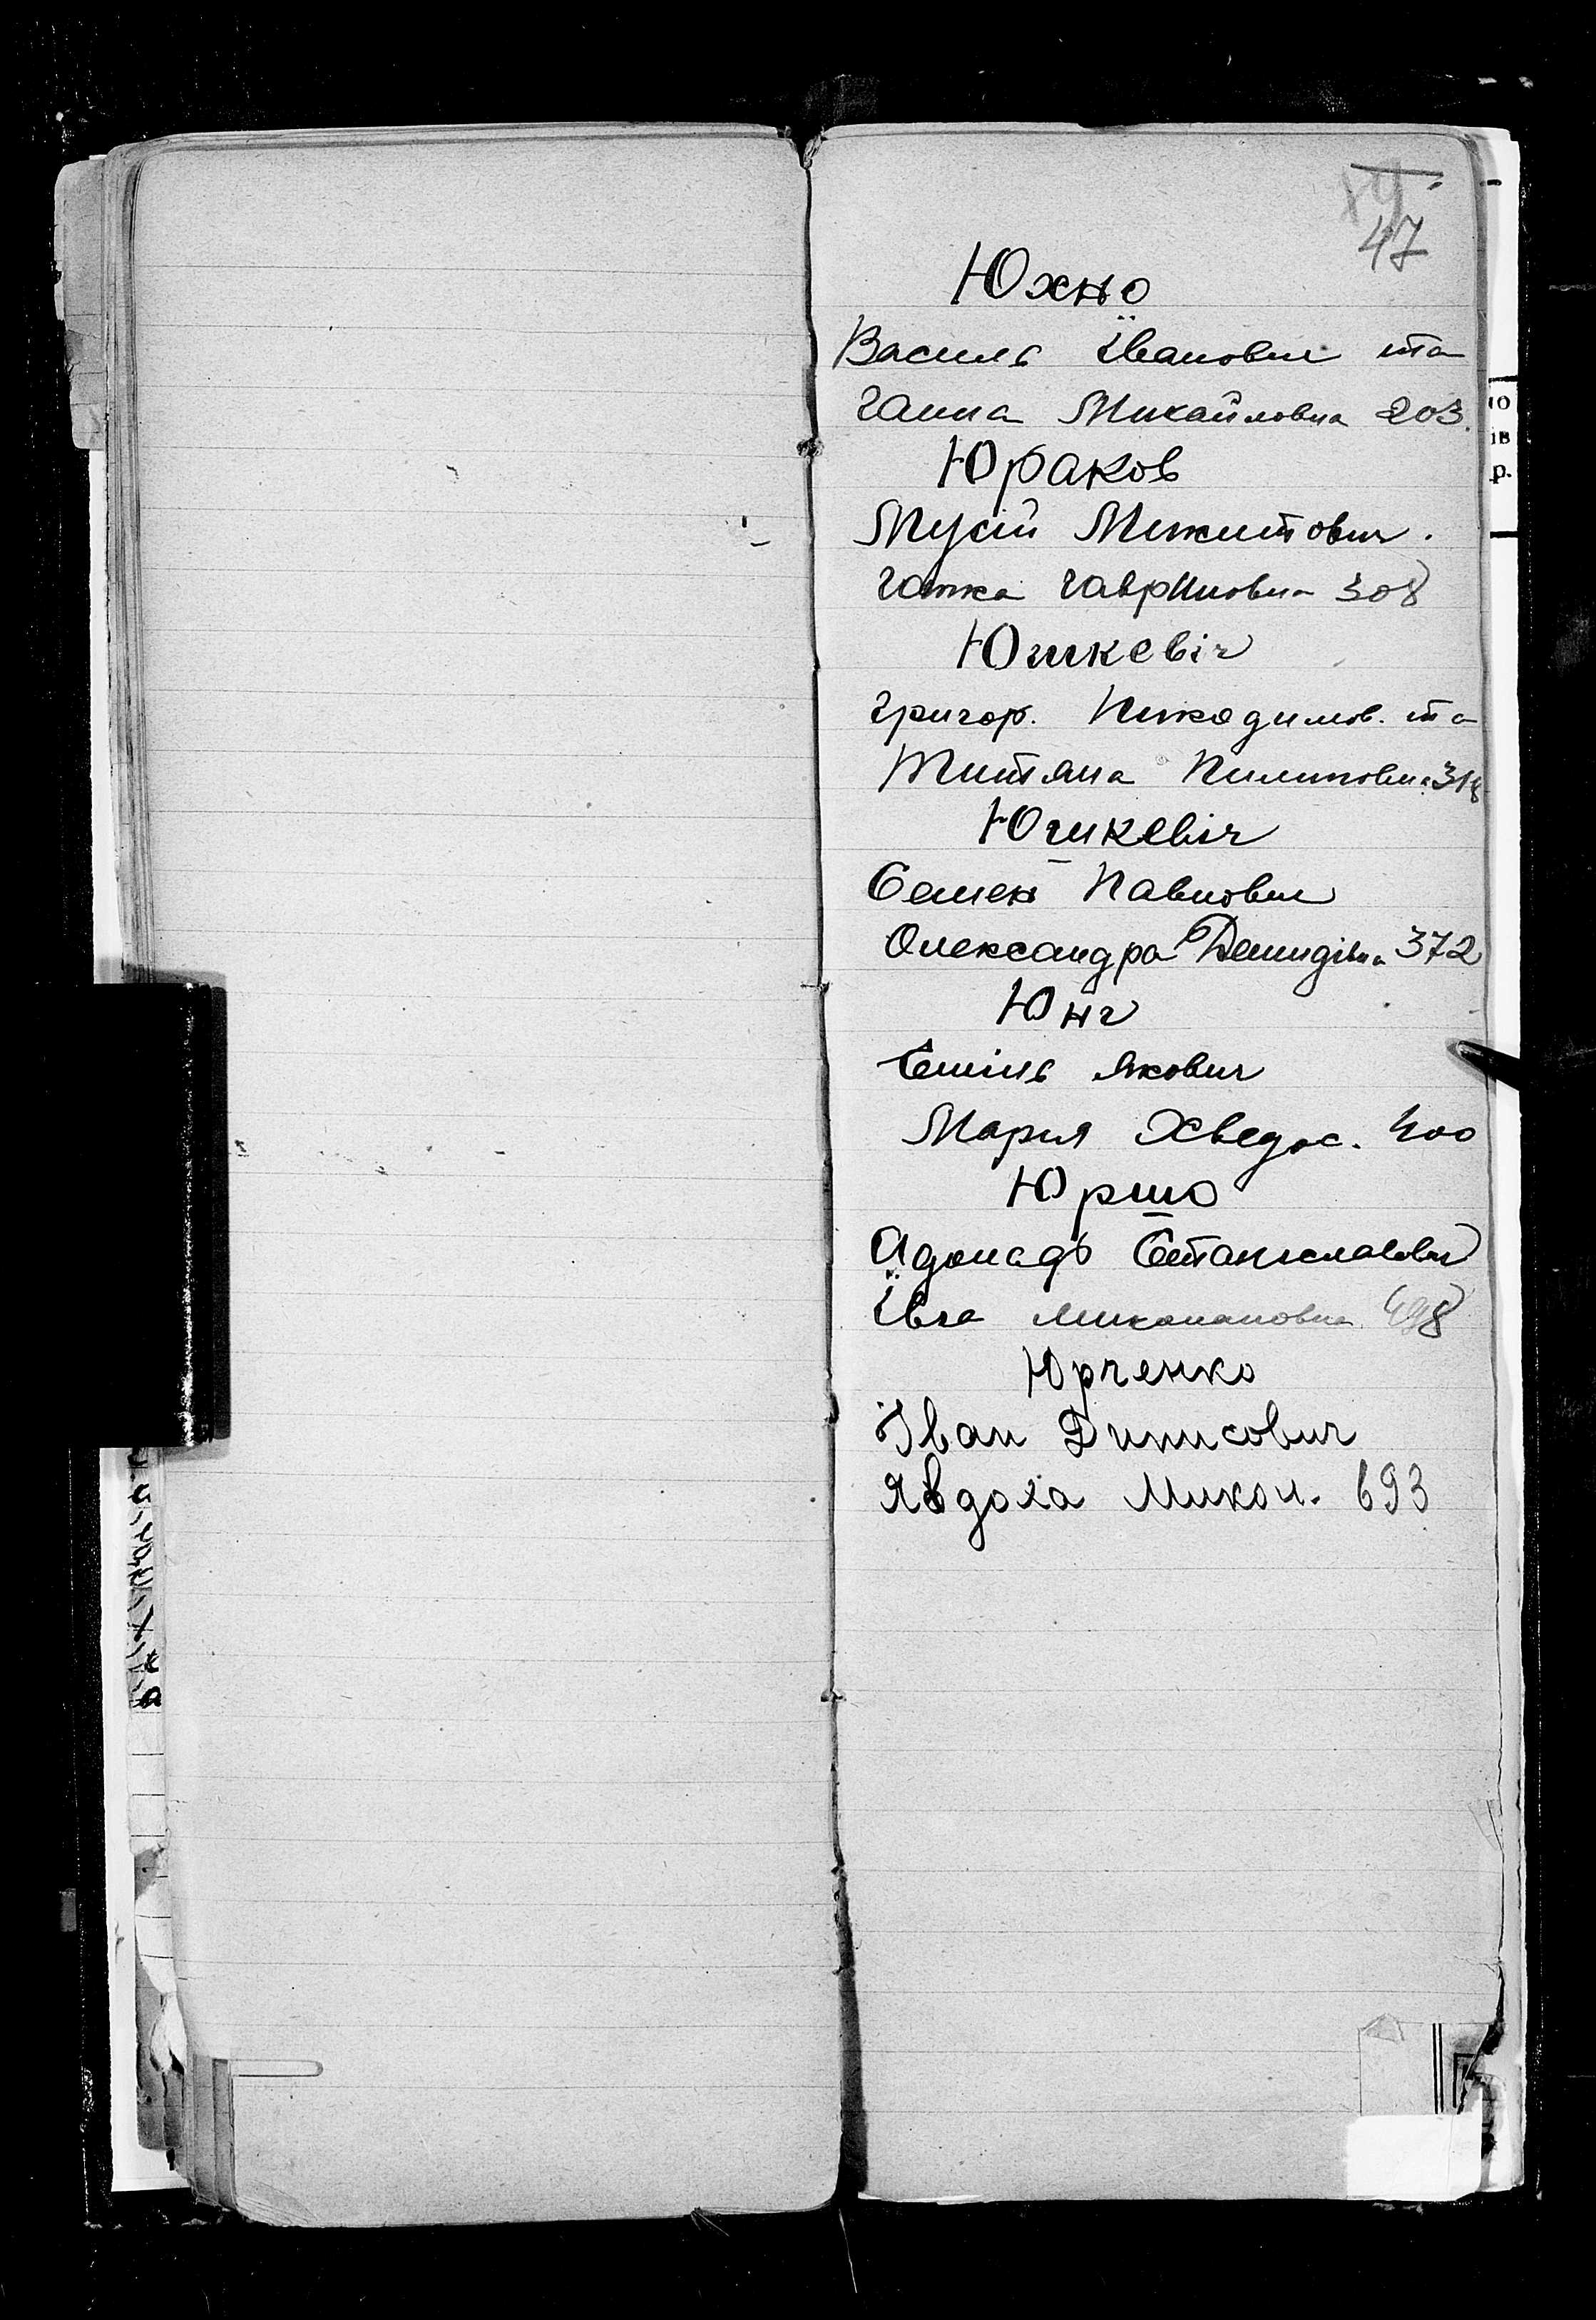 47
Юхно
Василь Їванович та
Ганна Михайловна 203.
Юраков
Мусій Микитович.
Ганка Гавриловна 308
Юшкевіч
Григор. Никодимов. та
Титяна Пилиповна 318
Юшкевіч
Семен Павлович
Олександра Демидівна 372
Юнг
Еміль Якович
Мария Хведос. 400
Юршо
Адольадь Станиславович
Ївга Миколаиовна 498
Юрченко
Їван Динисович
Явдоха Микол. 693